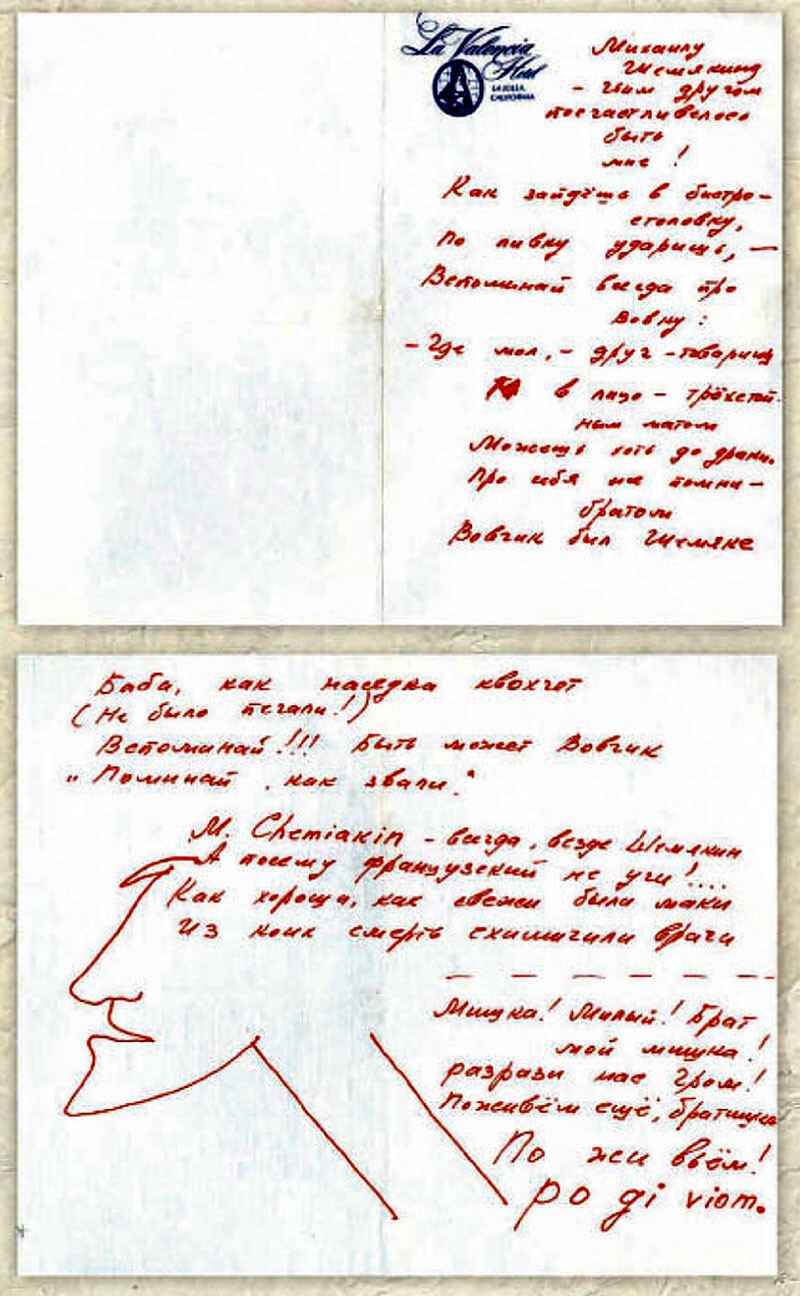 La Valencia
Hotel
LA JOLLA,
CALIFORNIA
Михаилу
Шемякину
- чьим другом
посчастливелось
быть
мне!
Как зайдёшь в бистро-
столовку,
По пивку ударишь, —
Вспоминай всегда про
Вовку:
- Где мол, - друг-товарищ
в лицо - трёхстой-
ным матом
Можешь хоть до драки.
Про себя же помни -
братом
Вовчик был Шемяке
Баба, как наседка квохчет
(Не было печали!)
Вспоминай!!! Быть может Вовчик
"Поминай, как звали."
M. Chemiakin - всегда, везде Шемякин
А посему французский не учи!...
Как хороши, как свежи были маки
Из коих смерть схимичили врачи
— — — — — — —
Мишка! Милый! Брат
мой мишка!
разрази нас Гром!
Поживём ещё, братишка
По жи вьём!
po gi viom.